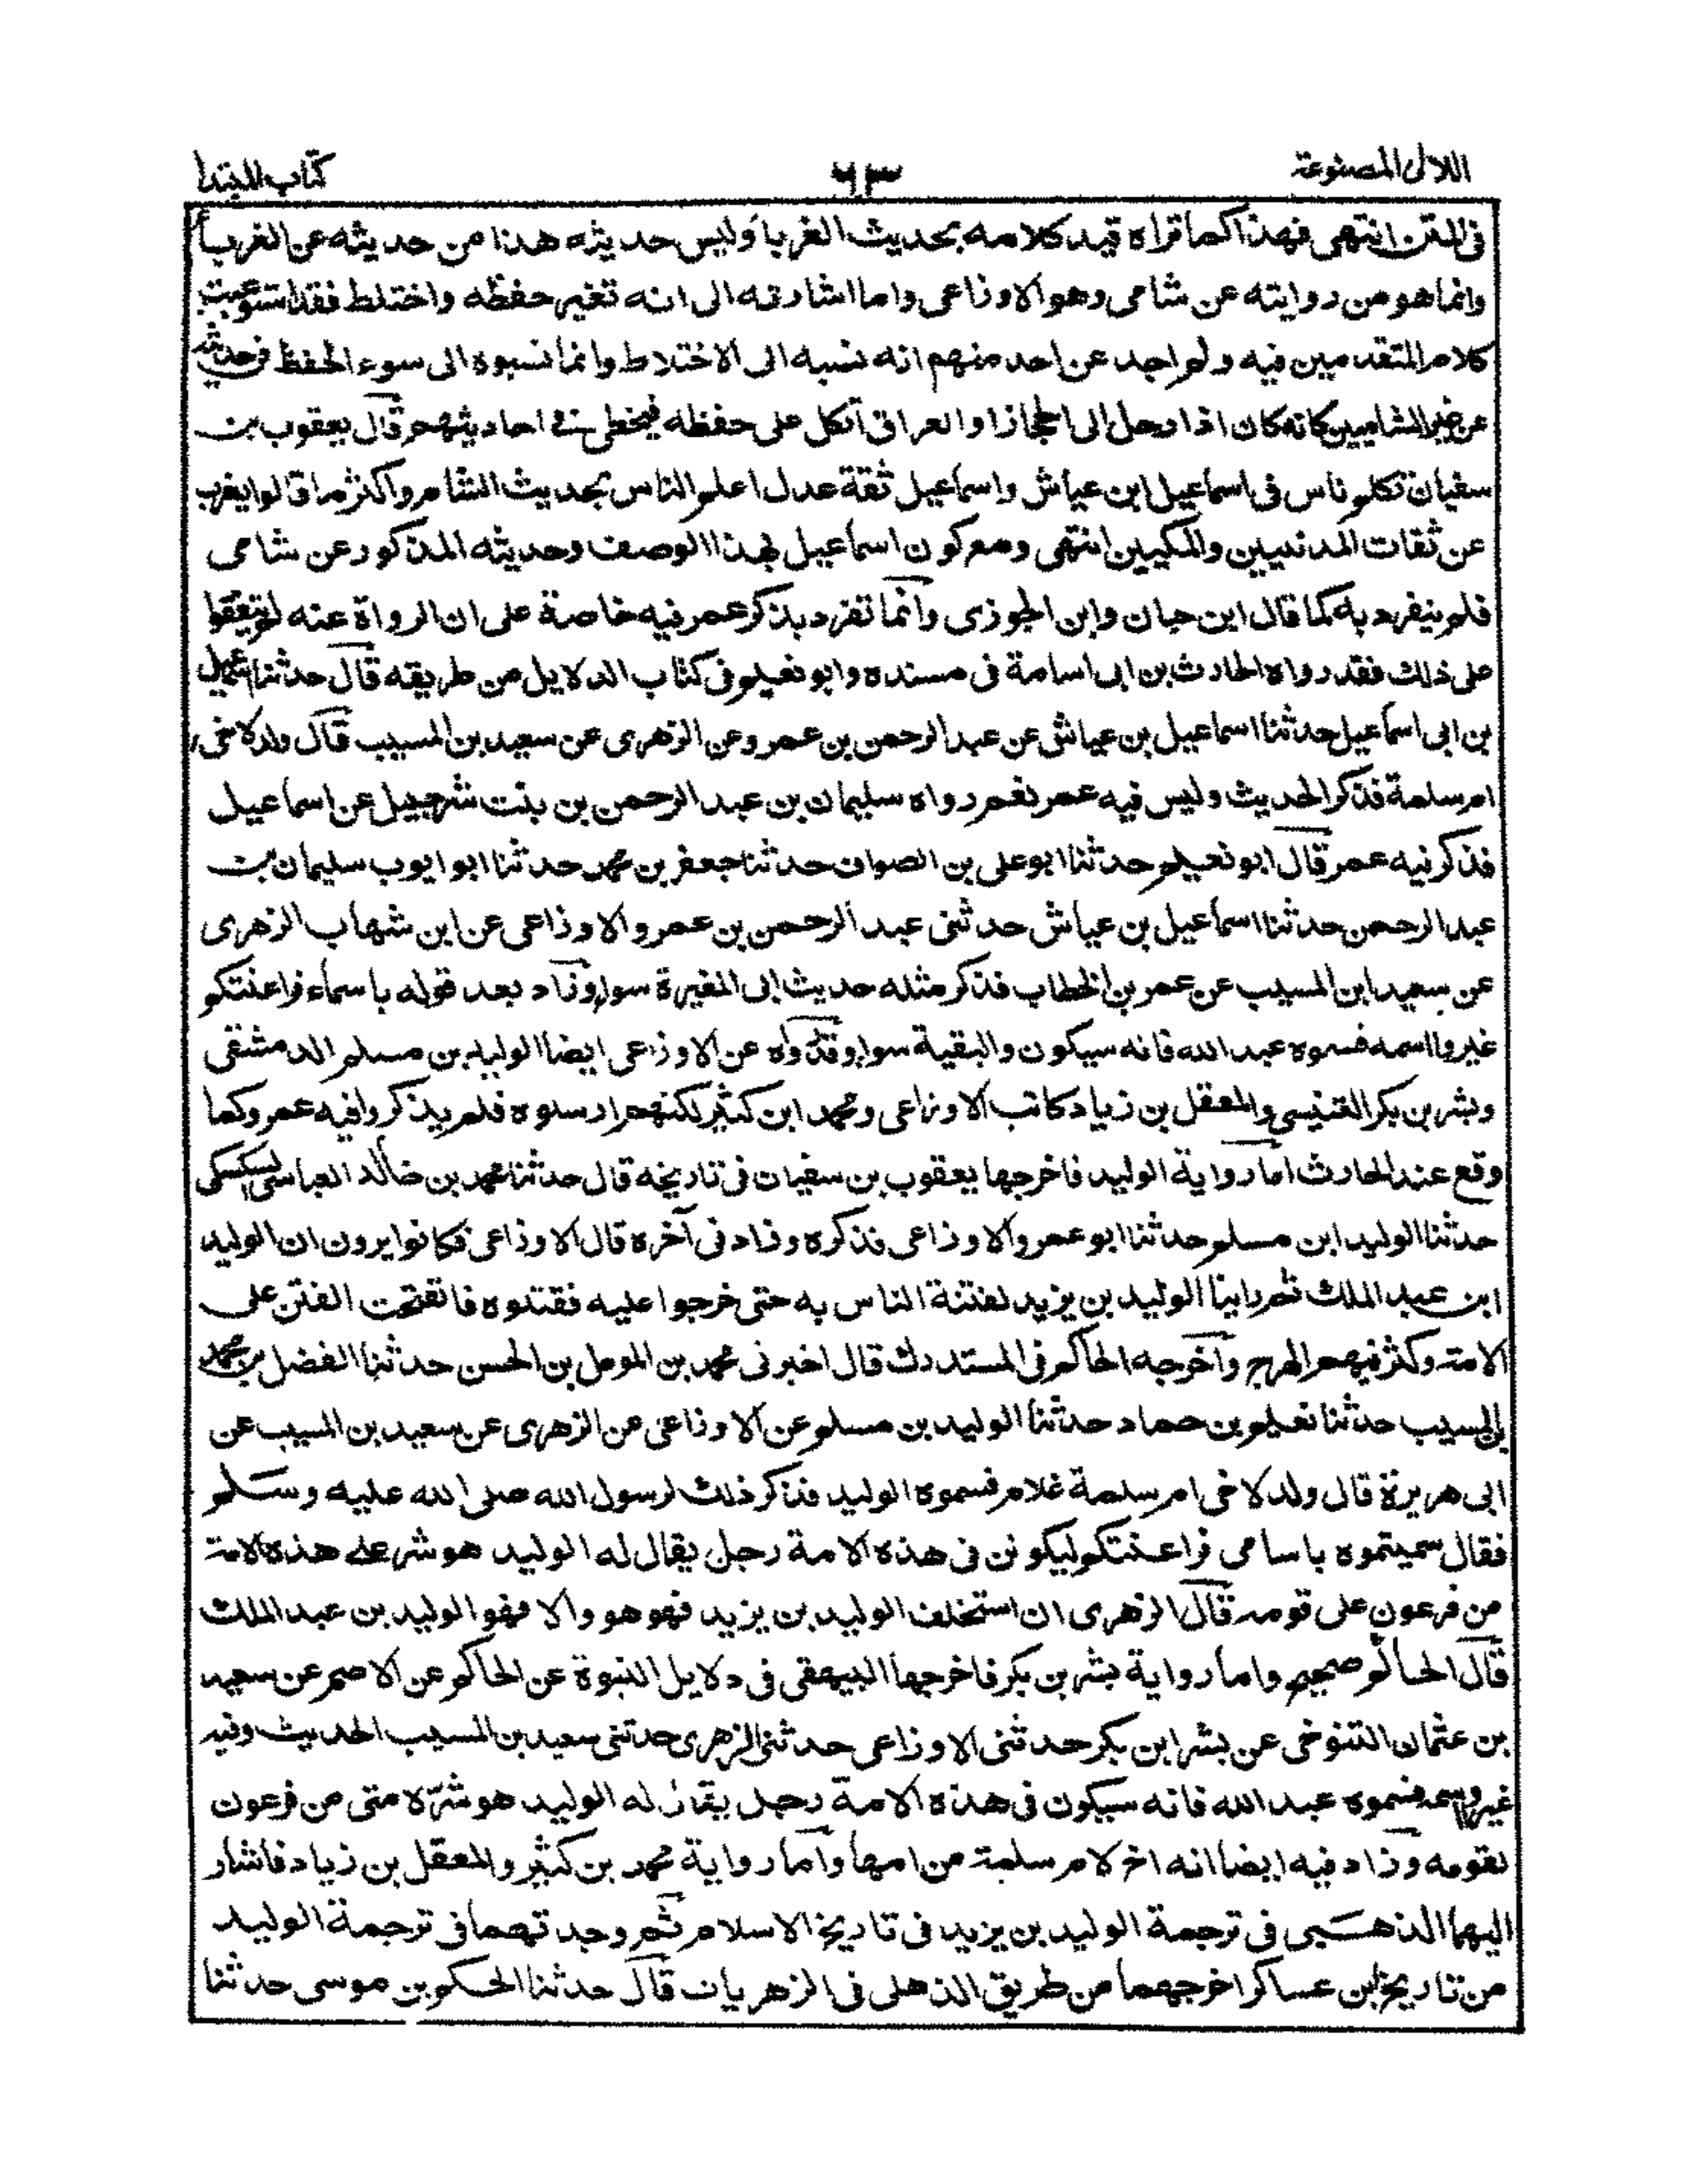 اللالى المصنوعة
٦٣
كتاب المبتدا
فى المتن انتهى فهذا كما تراه قيد كلامه بحديث الغربا وليس حديثه هذا من حديثه عن الغربا
وانما هو من روايته عن شامى وهو الاوزاعى واما اشارته الى انه تغير حفظه واختلط فقد استوعبت
كلام المتقدمين فيه ولم اجد عن احد منهم انه نسبه الى الاختلاط وانما نسبوه الى سوء الحفظ فى حديثه
عن غير الشاميين كانه كان اذا رحل الى الحجاز او العراق اتكل على حفظه فيخطى فى احاديثهم قال يعقوب بن
سفيان تكلم ناس فى اسماعيل ابن عياش واسماعيل ثقة عدل اعلم الناس بحديث الشام واكثر ما قالوا يغرب
عن ثقات المدنيين والمكيين انتهى ومع كون اسماعيل بهذا الوصف وحديثه المذكور عن شامى
فلم ينفرد به كما قال ابن حبان وابن الجوزى وانما تفرد بذكر عمر فيه خاصة على ان الرواة عنه لم يتفقوا
على ذلك فقد رواه الحارث بن ابى اسامة فى مسنده وابو نعيم فى كتاب الدلايل من طريقه قال حدثنا اسمعيل
بن ابى اسماعيل حدثنا اسماعيل بن عياش عن عبد الرحمن بن عمرو عن الزهرى عن سعيد بن المسيب قال ولد لاخى
ام سلمة فذكر الحديث وليس فيه عمر نعم رواه سليمان بن عبد الرحمن بن بنت شرحبيل عن اسماعيل
فذكر فيه عمر قال ابو نعيم حدثنا ابو على بن الصواف حدثنا جعفر بن محمد حدثنا ابو ايوب سليمان بن
عبد الرحمن حدثنا اسماعيل بن عياش حدثنى عبد الرحمن بن عمرو الاوزاعى عن ابن شهاب الزهرى
عن سعيد ابن المسيب عن عمر بن الخطاب فذكر مثله حديث ابى المغيرة سوا وزاد بعد قوله باسماء فراعنتكم
غيروا اسمه فسموه عبد الله فانه سيكون والبقية سوا وقد رواه عن الاوزاعى ايضا الوليد بن مسلم الدمشقى
وبشر بن بكر التنيسى والهقل بن زياد كاتب الاوزاعى ومحمد ابن كثير لكنهم ارسلوه فلم يذكروا فيه عمر وكما
وقع عند الحارث اما رواية الوليد فاخرجها يعقوب بن سفيان فى تاريخه قال حدثنا محمد بن خالد العباسى السكسكى
حدثنا الوليد ابن مسلم حدثنا ابو عمرو الاوزاعى فذكره وزاد فى آخره قال الاوزاعى فكانوا يرون ان الوليد
ابن عبد الملك ثم راينا الوليد بن يزيد لفتنة الناس به حتى خرجوا عليه فقتلوه فانفتحت الفتن على
الامة وكثر فيهم الهرج واخرجه الحاكم فى المستدرك قال اخبرنى محمد بن المومل بن الحسن حدثنا الفضل بن محمد
بن المسيب حدثنا نعيم بن حماد حدثنا الوليد بن مسلم عن الاوزاعى عن الزهرى عن سعيد بن المسيب عن
ابى هريرة قال ولد لاخى ام سلمة غلام فسموه الوليد فذكر ذلك لرسول الله صلى الله عليه وسلم
فقال سميتموه باسامى فراعنتكم ليكونن فى هذه الامة رجل يقال له الوليد هو شر على هذه الامة
من فرعون على قومه قال الزهرى ان استخلف الوليد بن يزيد فهو هو والا فهو الوليد بن عبد الملك
قال الحاكم صحيح واما رواية بشر بن بكر فاخرجها البيهقى فى دلايل النبوة عن الحاكم عن الاصم عن سعيد
بن عثمان التنوخى عن بشر ابن بكر حدثنى الاوزاعى حدثنى الزهرى حدثنى سعيد بن المسيب الحديث وفيه
غيروا اسمه فسموه عبد الله فانه سيكون فى هذه الامة رجل يقال له الوليد هو شر لامتى من فرعون
لقومه وزاد فيه ايضا انه اخ لام سلمة من امها واما رواية محمد بن كثير والهقل بن زياد فاشار
اليهما الذهبى فى ترجمة الوليد بن يزيد فى تاريخ الاسلام ثم وجدتهما فى ترجمة الوليد
من تاريخ ابن عساكر اخرجهما من طريق الذهلى فى الزهريات قال حدثنا الحكم بن موسى حدثنا